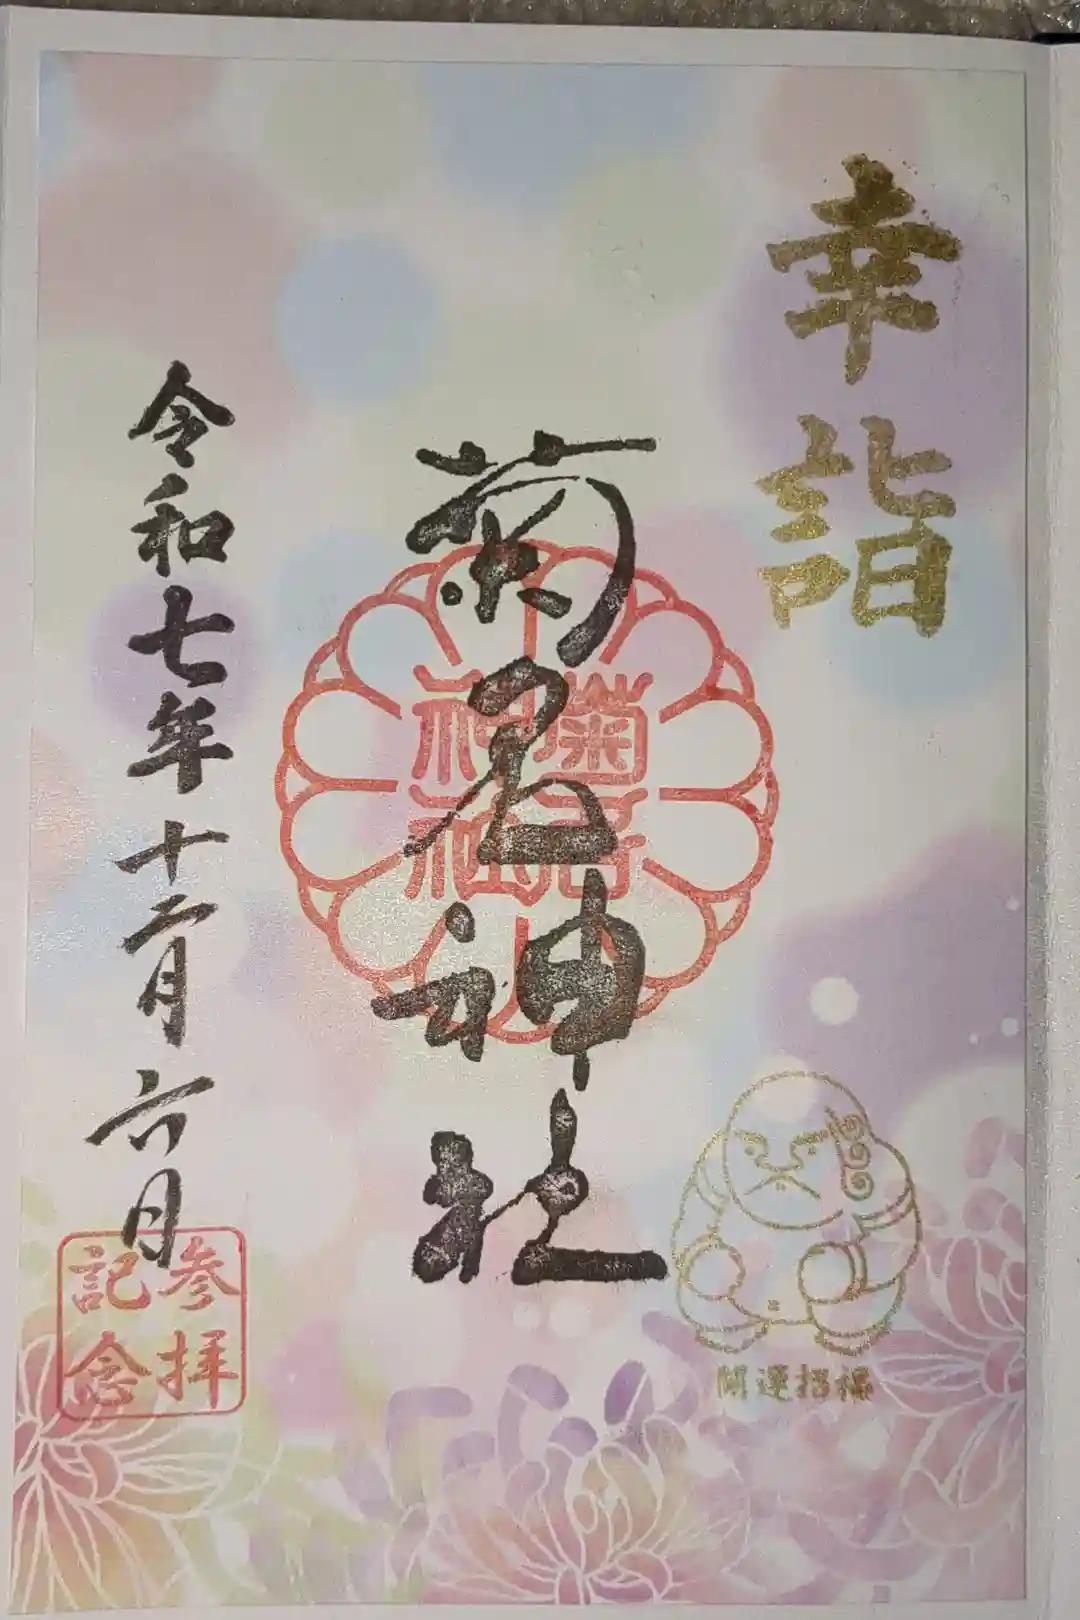 幸詣
菊名神社
菊名
神社
令和七年十二月六日
参拝
記念
開運招福